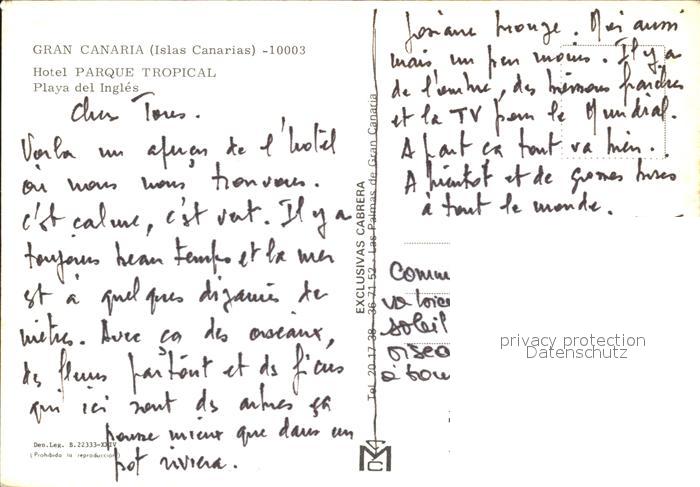 GRAN CANARIA (Islas Canarias) -10003
Hotel PARQUE TROPICAL
Playa del Inglés
Chers Tous.
Voilà un aperçu de l'hotel
où nous nous trouvons.
c'est calme, c'est vert. Il y a
toujours beau temps et la mer
est à quelques dizaines de
mètres. Avec ça des oiseaux,
des fleurs partout et des ficus
qui ici sont des arbres ça
pousse mieux que dans un
pot riviera.
Dep. Leg. B. 22333-XXIV
(Prohibida la reproducción)
EXCLUSIVAS CABRERA
Tel. 20 17 38 - 36 71 52 - Las Palmas de Gran Canaria
Josiane bronze. Moi aussi
mais un peu moins. Il y a
de l'ombre, des boissons fraiches
et la TV pour le Mundial.
A part ça tout va bien.
A bientôt et de grosses bises
à tout le monde.
Comm
soleil
oisea
privacy protection
Datenschutz